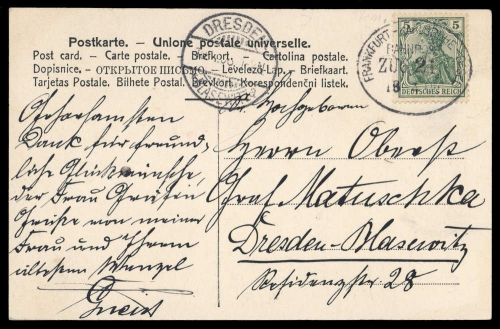 Postkarte. – Unione postale universelle.
Post card. – Carte postale. – Brefkort. – Cartolina postale.
Dopisnice. – ОТКРЫТОЕ ПИСЬМО. – Levelező-Lap. – Briefkaart.
Tarjetas Postales. Bilhete Postal. Brevkort. Korespondenční listek.
DRESDEN
BLASEWITZ
FRANKFURT
BAHNPOST
ZUG 21
5 5
DEUTSCHES REICH
Gehorsamsten
Dank für freund-
liche Glückwünsche
der Frau Gräfin
Grüße von meiner
Frau und Ihrem
ältesten Wenzel
Gneist
Hochgeboren
Herrn Oberst
Graf Matuschka
Dresden-Blasewitz
Residenzstr 28